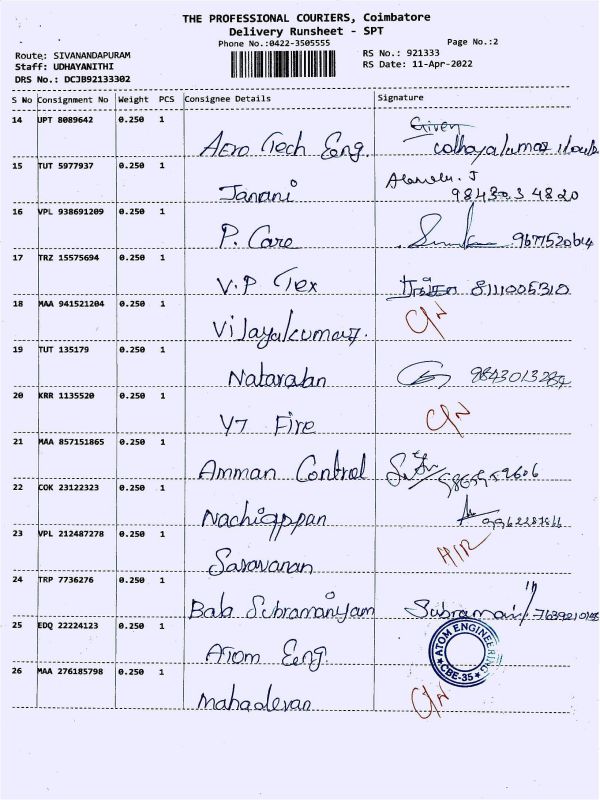 THE PROFESSIONAL COURIERS, Coimbatore
Delivery Runsheet - SPT
Phone No.:0422-3505555 Page No.:2
Route: SIVANANDAPURAM RS No.: 921333
Staff: UDHAYANITHI RS Date: 11-Apr-2022
DRS No.: DCJB92133302
S No Consignment No Weight PCS Consignee Details Signature
14 UPT 8089642 0.250 1 Aero Tech Eng. Given
15 TUT 5977937 0.250 1 Janani 98430 34820
16 VPL 938691209 0.250 1 P. Care 9677520614
17 TRZ 15575694 0.250 1 V.P Tex 8111005310
18 MAA 941521204 0.250 1 Vijayakumar. C/N
19 TUT 135179 0.250 1 Natarajan 9843013287
20 KRR 1135520 0.250 1 Y7 Fire C/N
21 MAA 857151865 0.250 1 Amman Control
22 COK 23122323 0.250 1 Nachiappan
23 VPL 212487278 0.250 1 Saravanan
24 TRP 7736276 0.250 1 Bala Subramaniyam
25 EDQ 22224123 0.250 1 Atom Eng. ATOM ENGINEERING CBE-35
26 MAA 276185798 0.250 1 Mahadevan C/N